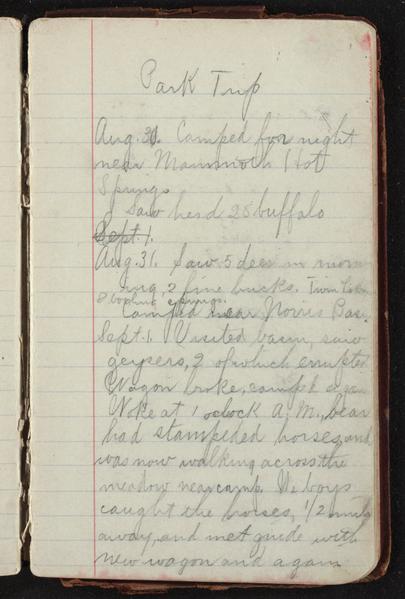 Park Trip
Aug. 30. Camped for night
near Mammoth Hot
Springs
Saw herd 28 buffalo
Sept. 1.
Aug. 31. Saw 5 deer in morn
ing, 2 fine bucks. Twin Lakes
2 boiling springs.
Camped near Norris Bas.
Sept. 1. Visited basin, saw
geysers, 2 of which erupted
Wagon broke, camped again
Woke at 1 oclock A.M., bear
had stampeded horses, and
was now walking across the
meadow near camp. We boys
caught the horses, 1/2 mile
away, and met guide with
new wagon and again